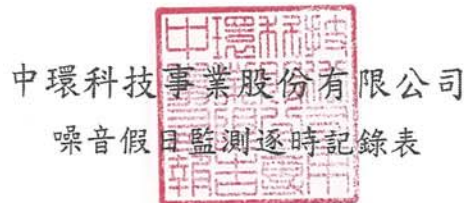 中環科技事業股份有限公司
噪音假日監測逐時記錄表